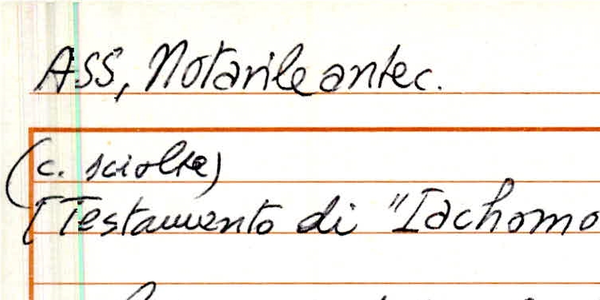 ASS, Notarile antec.
(c. sciolte)
[Testamento di "Iachomo